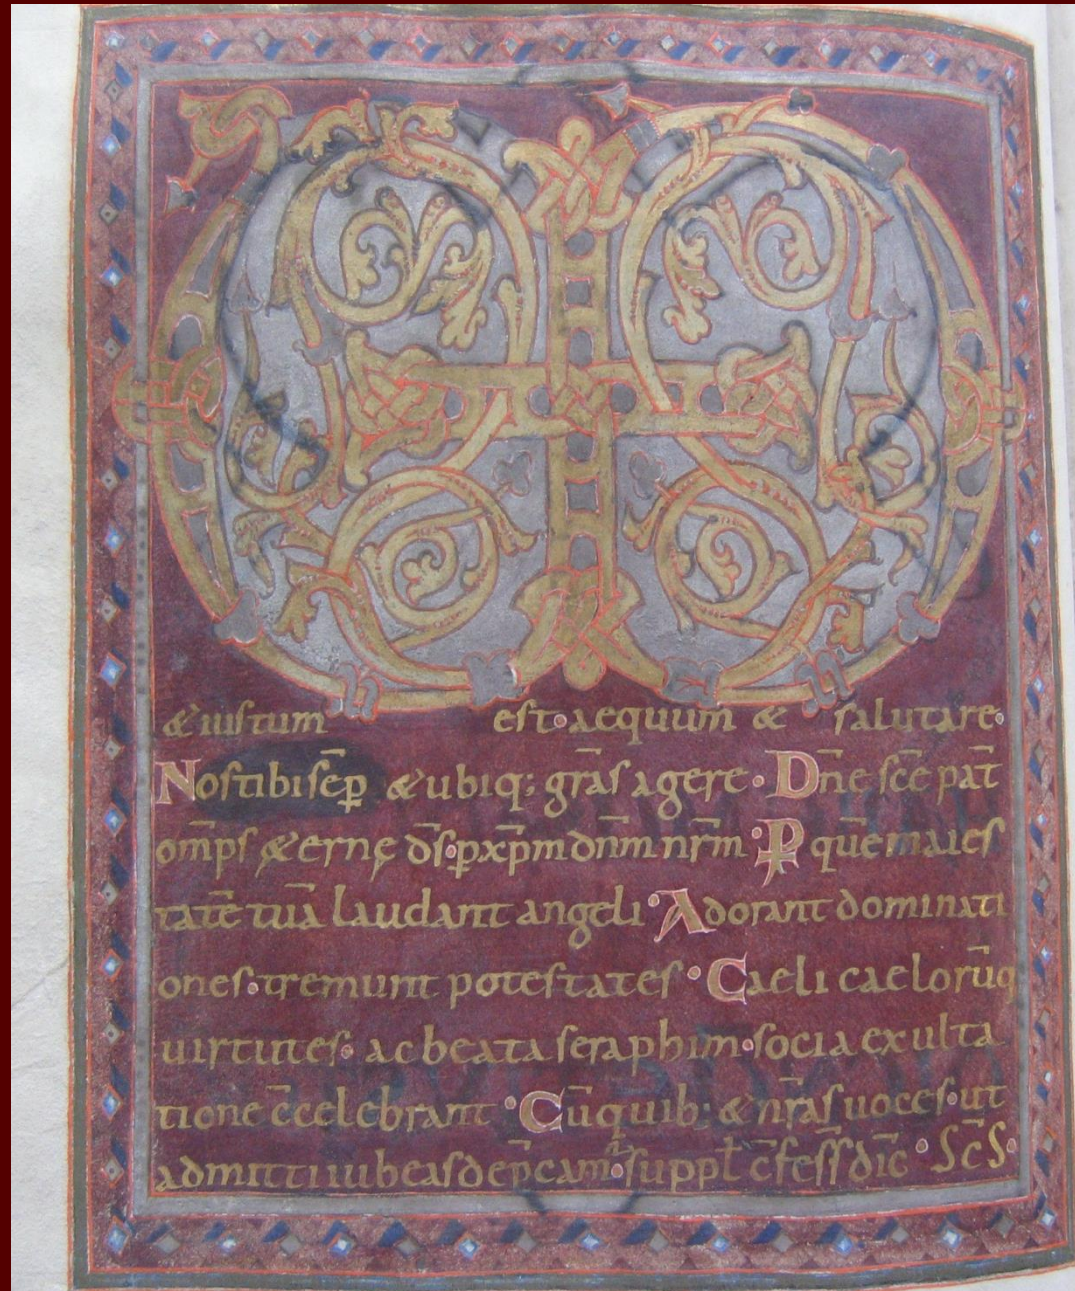 VD
& iustum est· aequum & salutare·
Nos tibi sēp & ubiq; grās agere· Dn̄e sc̄e pat̄
omp̄s &erne d̄s· p xp̄m dn̄m nr̄m· P quē maies
tatē tuā laudant angeli· Adorant dominati
ones· tremunt potestates· Caeli caelorūq
uirtutes· ac beata seraphim· socia exulta
tione c̄celebrant· Cū quib; & nr̄as uoces· ut
admitti iubeas dep̄cam̄· suppł c̄fess̄ dic̄· Sc̄s·